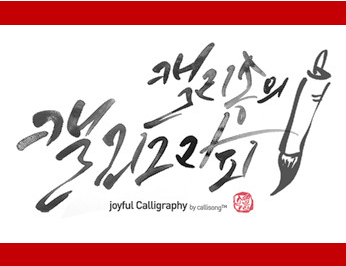 캘리송의
캘리그라피
joyful Calligraphy by callisong™